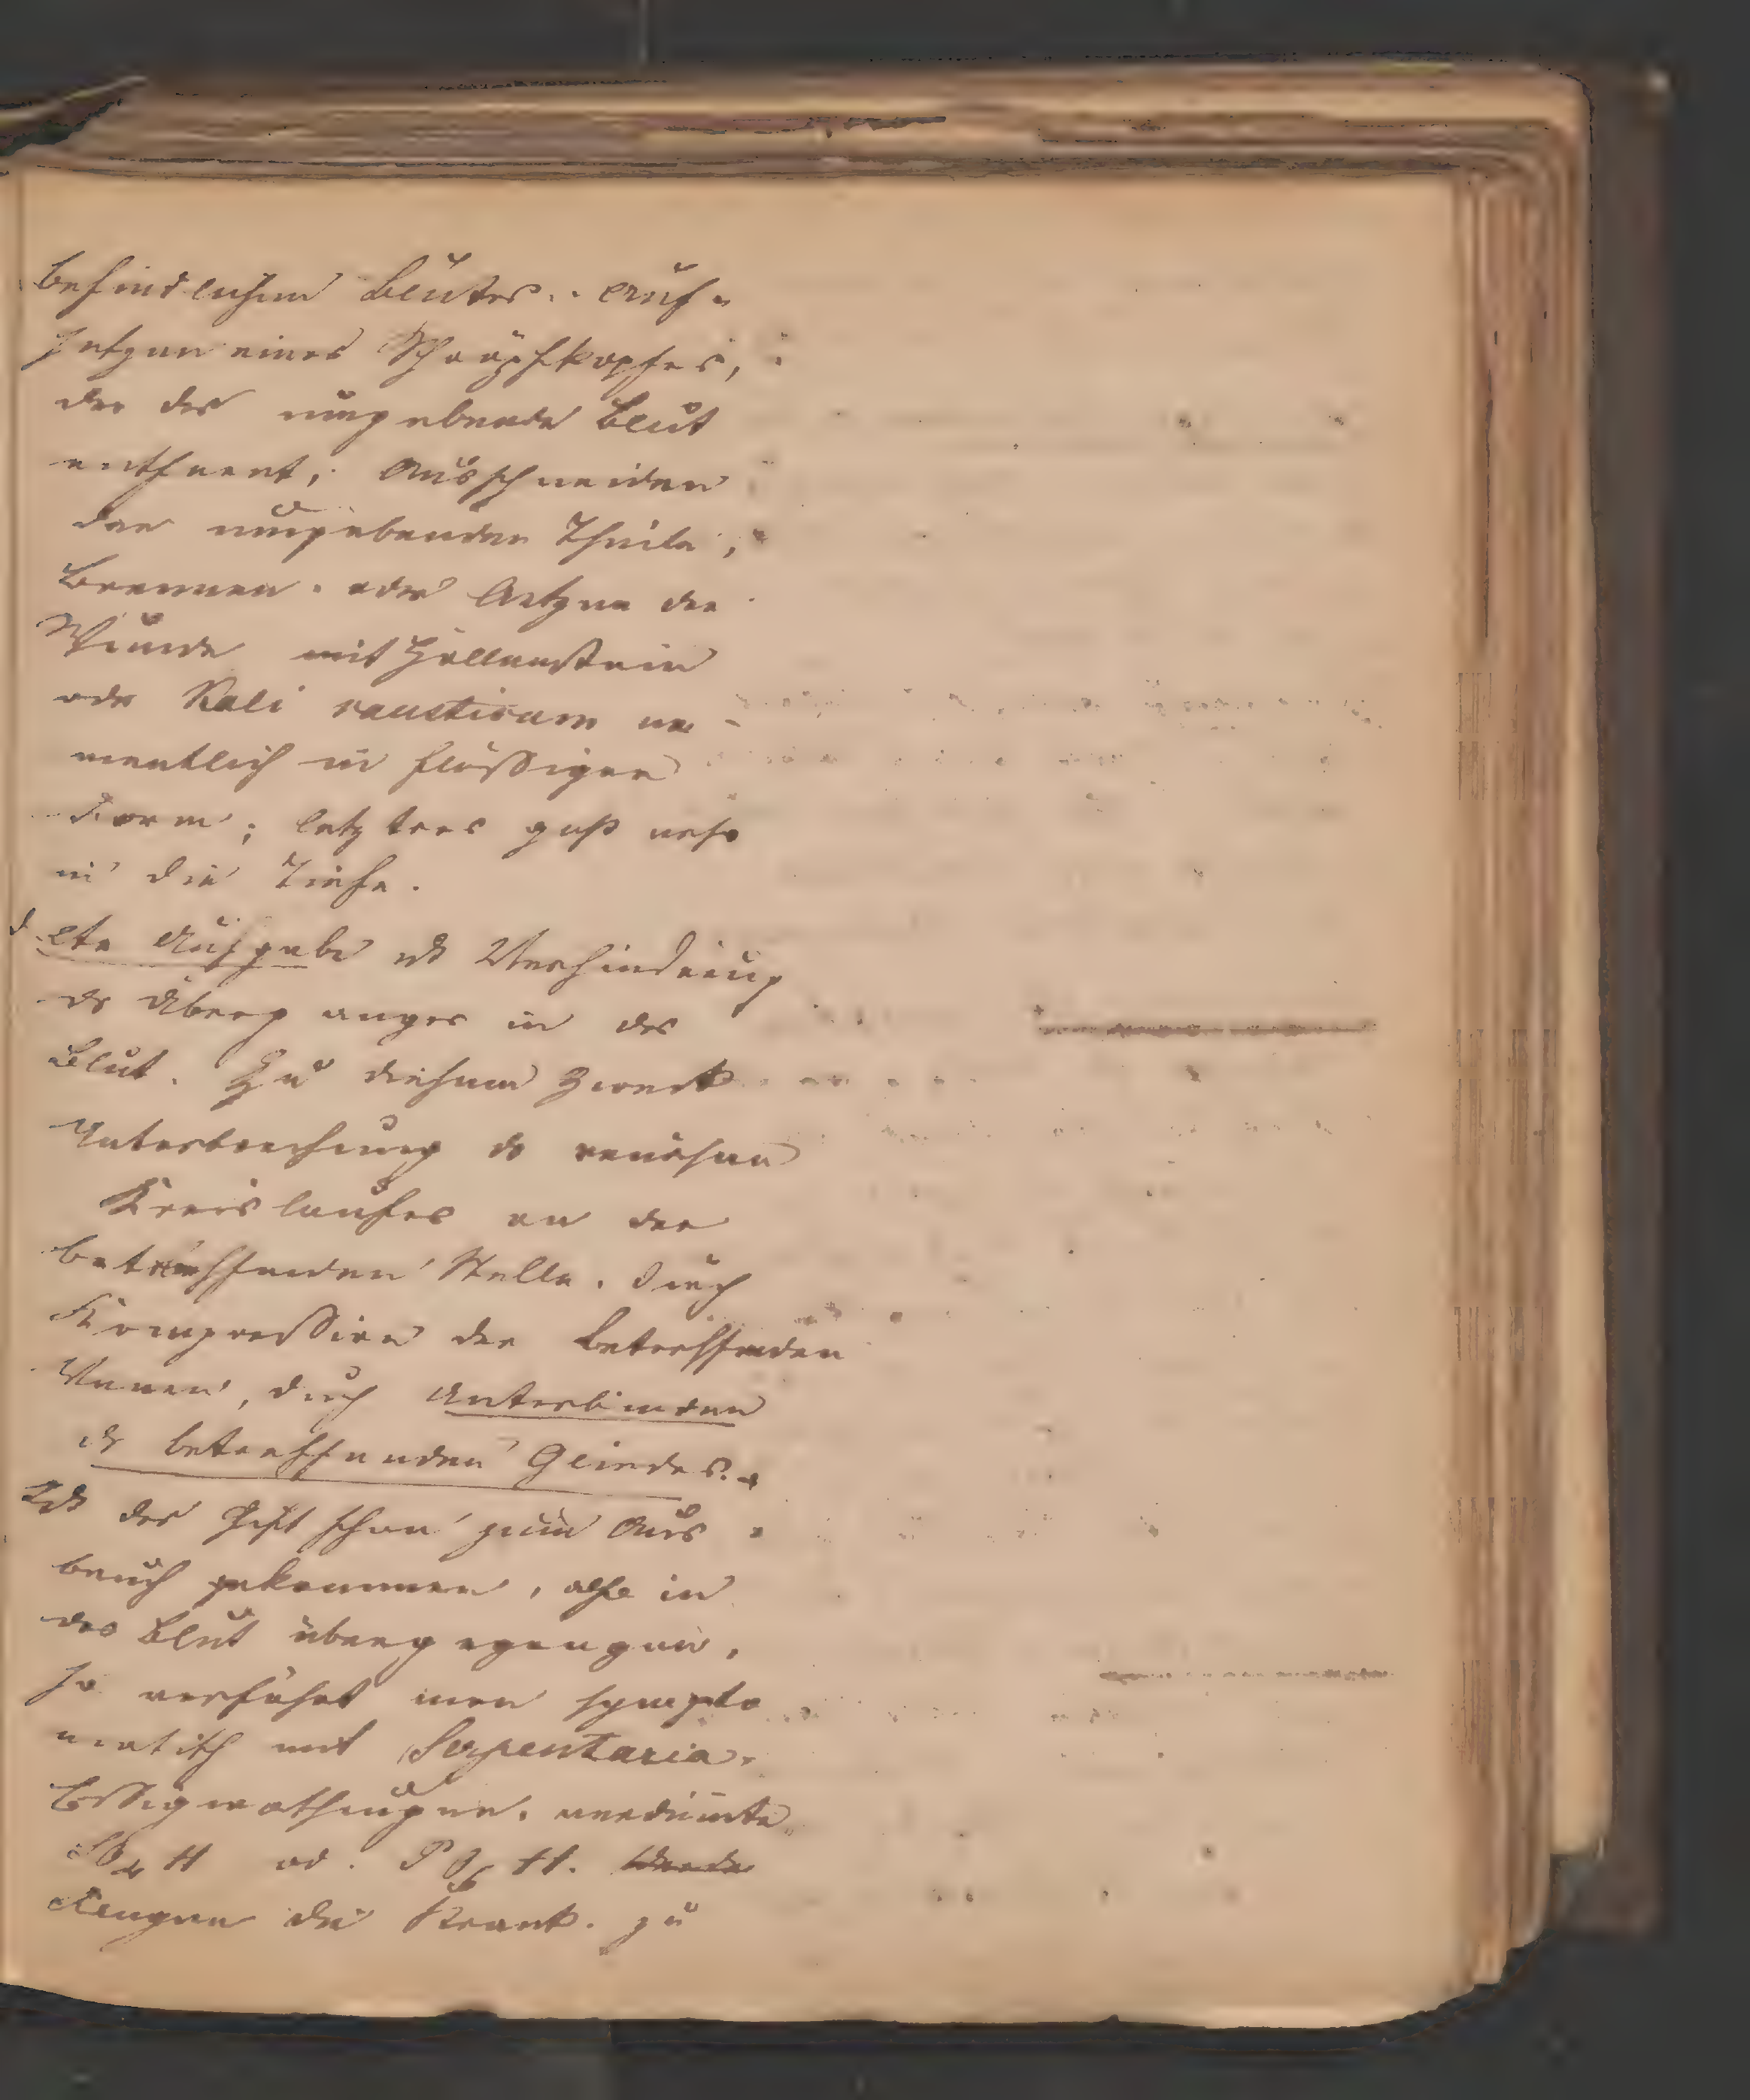 befindlichen Blutes. Auf-
setzen eines Schröpfkopfes,
der das umgebende Blut
entfernt, Ausschneiden
der umgebenden Theile,
Brennen oder Aetzen der
Wunde mit Höllenstein
oder Kali causticum na-
mentlich in flüssiger
Form; letzteres geht mehr
in die Tiefe.
2te Aufgabe ist Verhinderung
des Überganges in das
Blut. Zu diesem Zweck
Unterbrechung des venösen
Kreislaufes an der
betreffenden Stelle. Durch
Kompression der betreffenden
Venen, durch Unterbinden
des betreffenden Gliedes.
Ist das Gift schon zum Aus
bruch gekommen, also in
das Blut übergegangen,
so verfährt man sympto
matisch mit Serpentaria.
Essigwaschungen. verdünnte
SO4H od. PO5H.
Fangen die Krank. zu